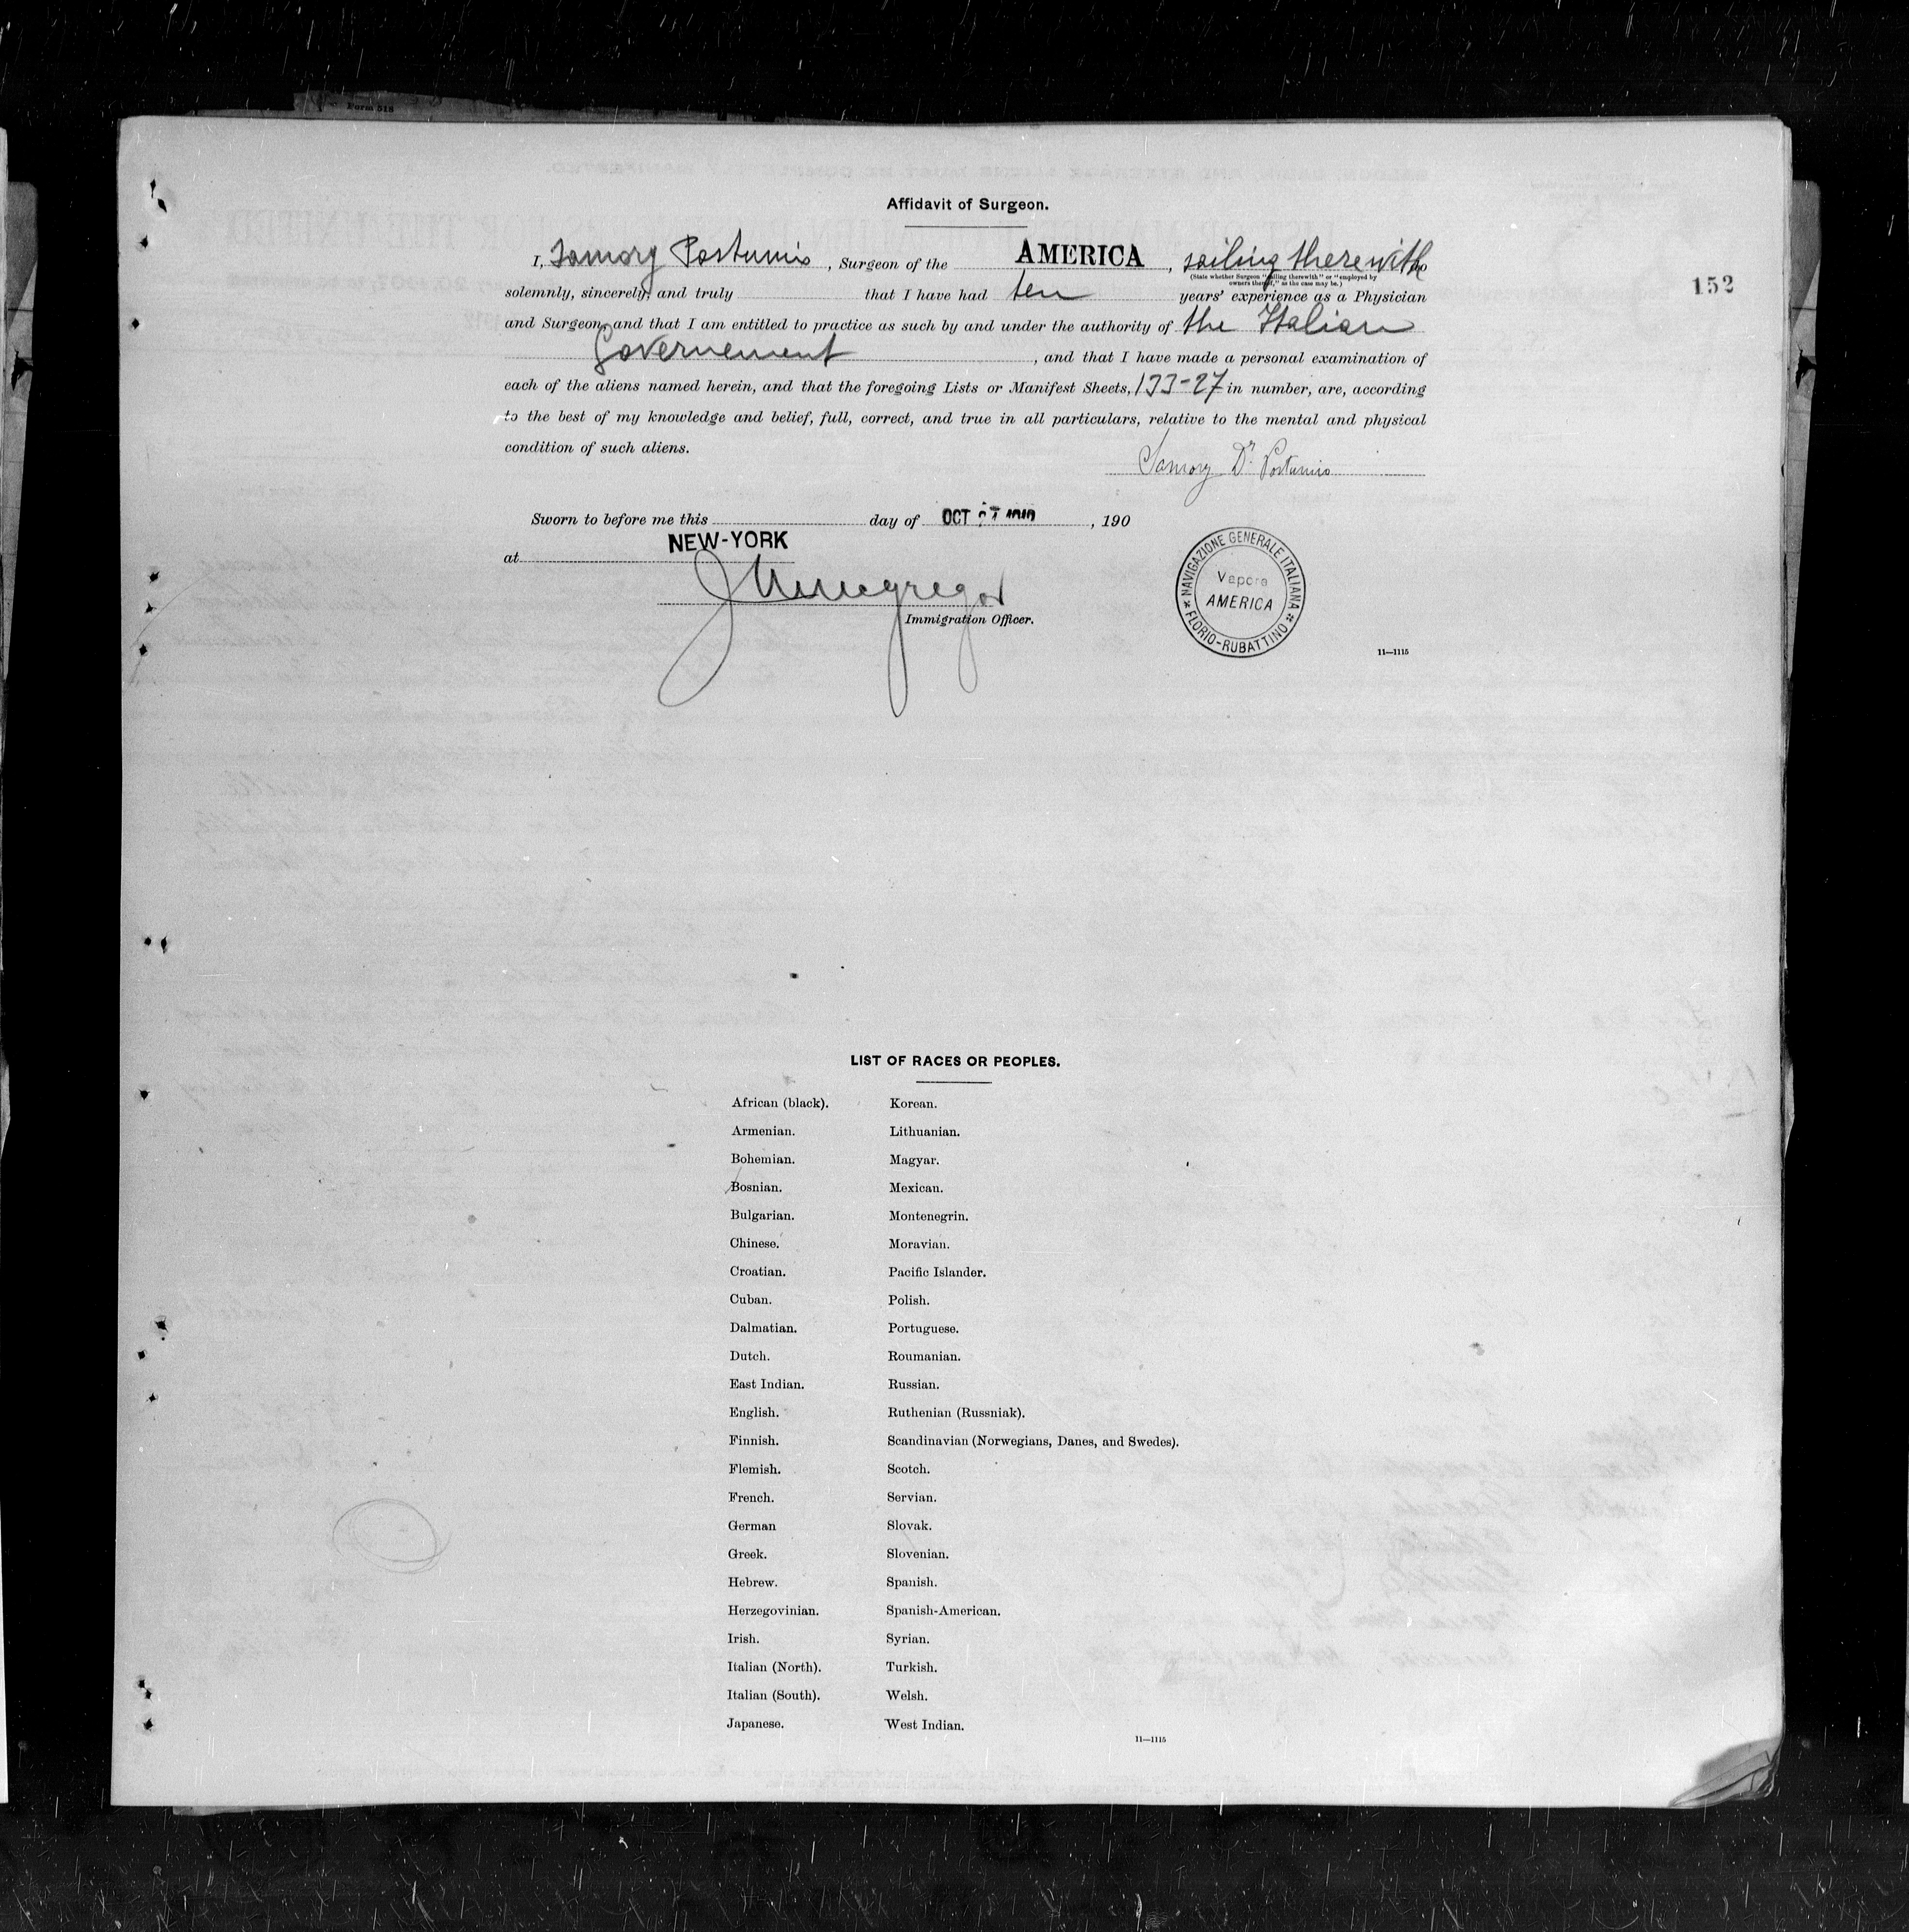 Form 518
Affidavit of Surgeon.
I, Samory Postumio, Surgeon of the AMERICA, sailing therewith do
(State whether Surgeon "sailing therewith" or "employed by
owners thereof," as the case may be.)
152
solemnly, sincerely, and truly that I have had ten years' experience as a Physician
and Surgeon, and that I am entitled to practice as such by and under the authority of the Italian
Governement, and that I have made a personal examination of
each of the aliens named herein, and that the foregoing Lists or Manifest Sheets, 133-27 in number, are, according
to the best of my knowledge and belief, full, correct, and true in all particulars, relative to the mental and physical
condition of such aliens.
Samory Dr. Postumio
Sworn to before me this day of OCT , 190
NEW-YORK
at
Immigration Officer.
NAVIGAZIONE GENERALE ITALIANA
Vapore
AMERICA
FLORIO-RUBATTINO
11—1115
LIST OF RACES OR PEOPLES.
African (black). Korean.
Armenian. Lithuanian.
Bohemian. Magyar.
Bosnian. Mexican.
Bulgarian. Montenegrin.
Chinese. Moravian.
Croatian. Pacific Islander.
Cuban. Polish.
Dalmatian. Portuguese.
Dutch. Roumanian.
East Indian. Russian.
English. Ruthenian (Russniak).
Finnish. Scandinavian (Norwegians, Danes, and Swedes).
Flemish. Scotch.
French. Servian.
German Slovak.
Greek. Slovenian.
Hebrew. Spanish.
Herzegovinian. Spanish-American.
Irish. Syrian.
Italian (North). Turkish.
Italian (South). Welsh.
Japanese. West Indian.
11—1115